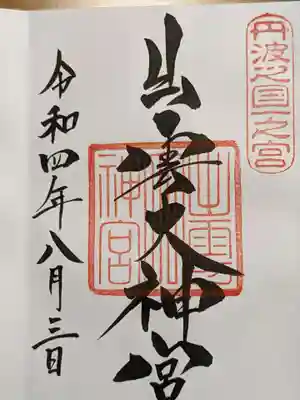 丹波國一之宮
出雲大神宮
出雲大神宮
令和四年八月三日